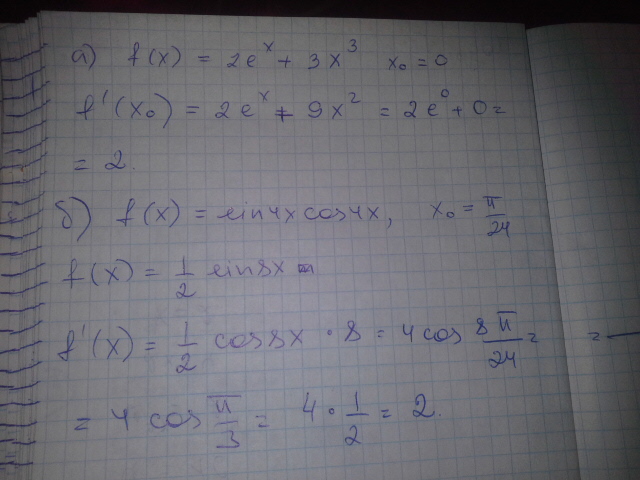 а) f(x) = 2e^x + 3x^3 x₀ = 0
f'(x₀) = 2e^x + 9x^2 = 2e^0 + 0 =
= 2.
б) f(x) = sin4x cos4x, x₀ = π/24
f(x) = 1/2 sin8x
f'(x) = 1/2 cos8x · 8 = 4 cos 8π/24 = = —
= 4 cos π/3 = 4 · 1/2 = 2.